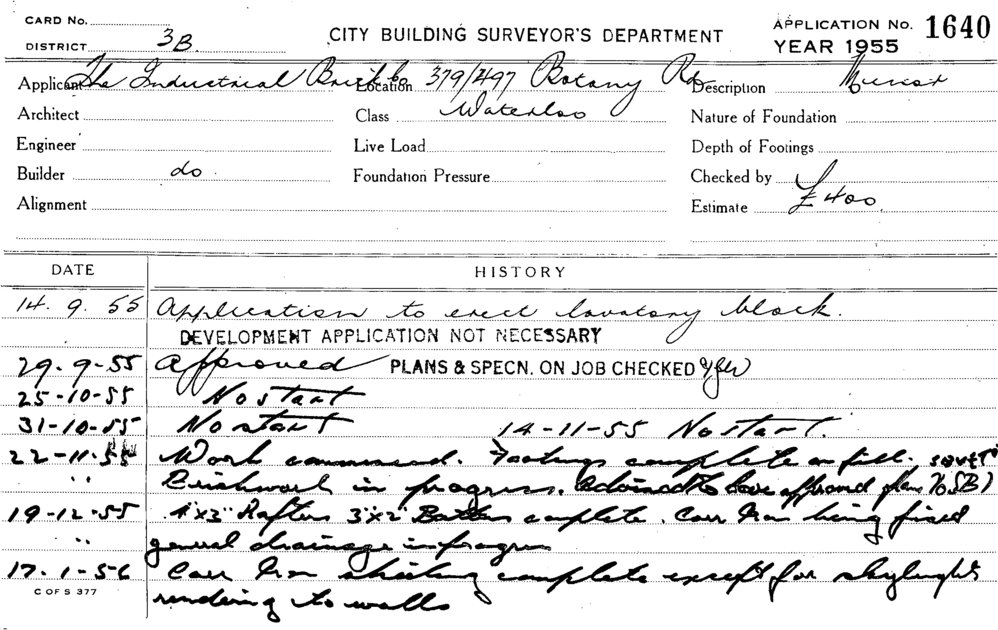 CARD No.
DISTRICT 3B
CITY BUILDING SURVEYOR'S DEPARTMENT
APPLICATION No. 1640
YEAR 1955
Applicant The Industrial Brick Co Location 379/497 Botany Rd Description Minor
Architect Class Waterloo Nature of Foundation
Engineer Live Load Depth of Footings
Builder do Foundation Pressure Checked by
Alignment Estimate £400.
DATE HISTORY
14.9.55 Application to erect lavatory block.
DEVELOPMENT APPLICATION NOT NECESSARY
29-9-55 Approved PLANS & SPECN. ON JOB CHECKED
25-10-55 No start
31-10-55 No start 14-11-55 No start.
22-11-55 Work commenced. Footings complete on fill.
" Brickwork in progress. Advised to have approved plans
19-12-55 4"x3" Rafters 3"x2" Battens complete. Corr Iron being fixed
" general drainage in progress
17-1-56 Corr Iron sheeting complete except for skylights
C OF S 377
rendering to walls